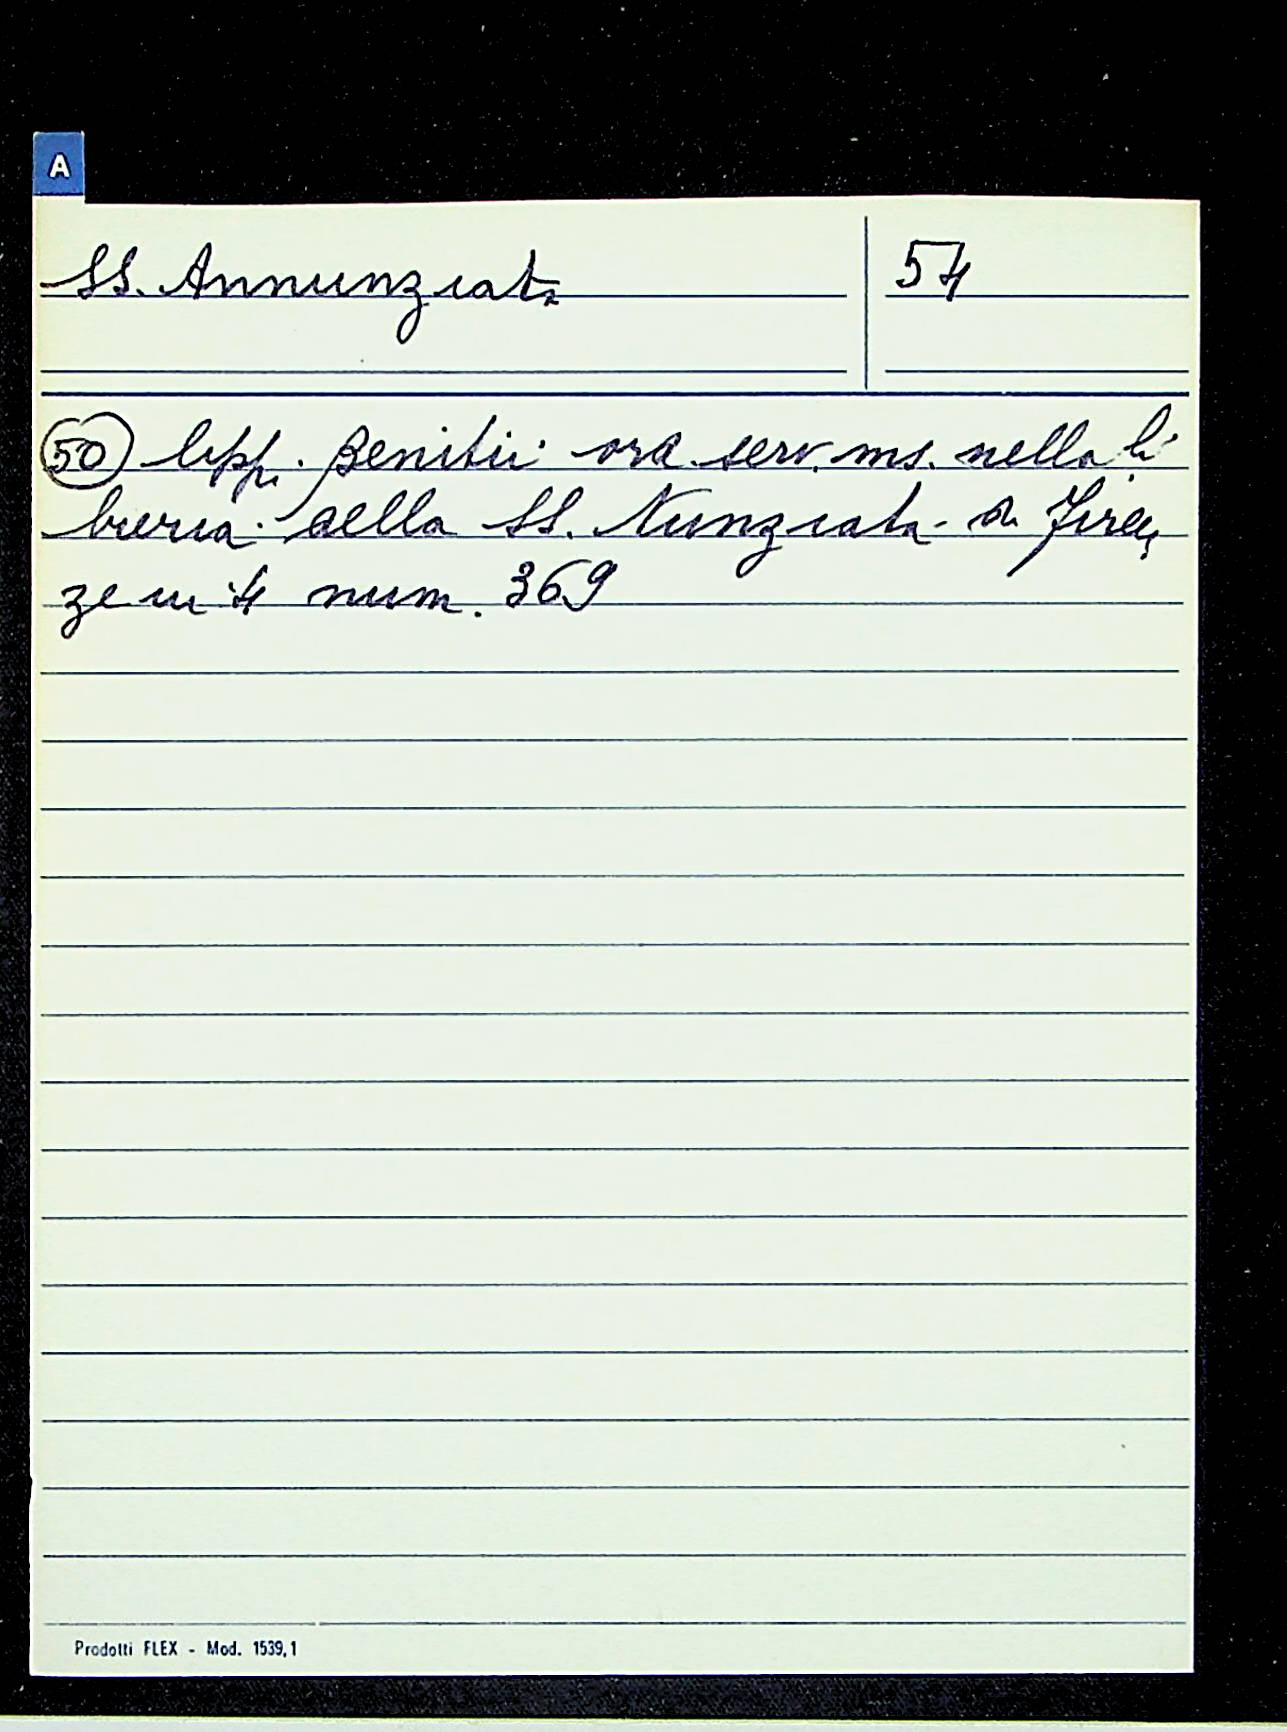 A
SS. Annunziata
54
50 Benitii ora serv. ms. nella li
breria della SS. Nunziata di Firen
ze in 4 num. 369
Prodotti FLEX - Mod. 1539,1